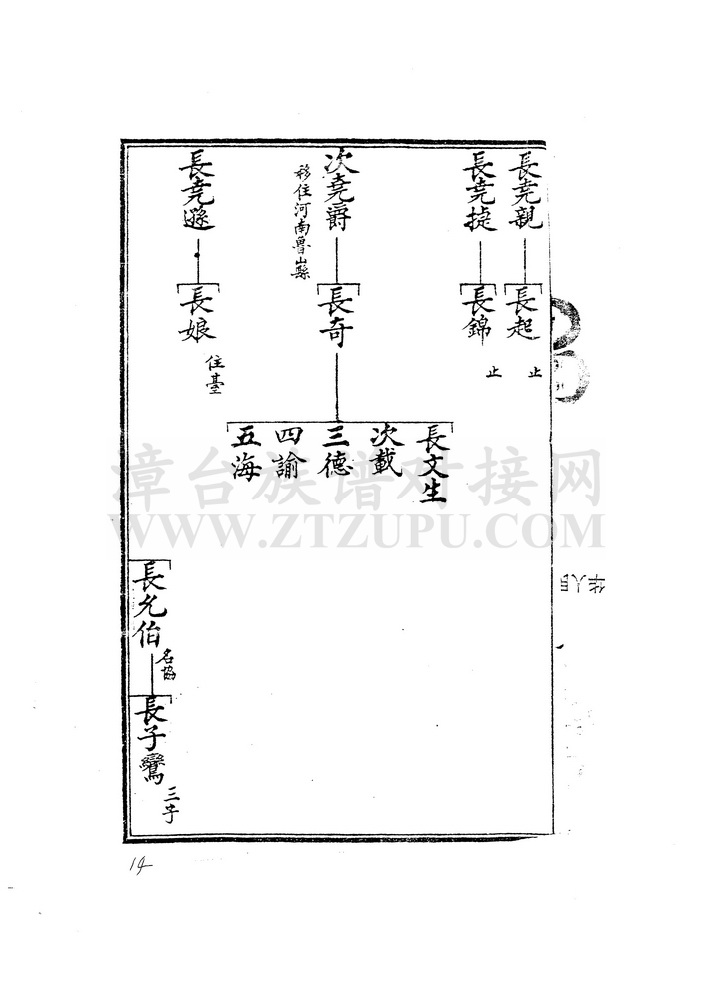 長堯親
長起
止
長堯捷
長錦
止
次堯爵
移住河南魯山縣
長奇
長文生
次載
三德
四諭
五海
長堯遜
長娘
住臺
長允伯
名協
長子鸞
14
漳台族谱对接网
WWW.ZTZUPU.COM